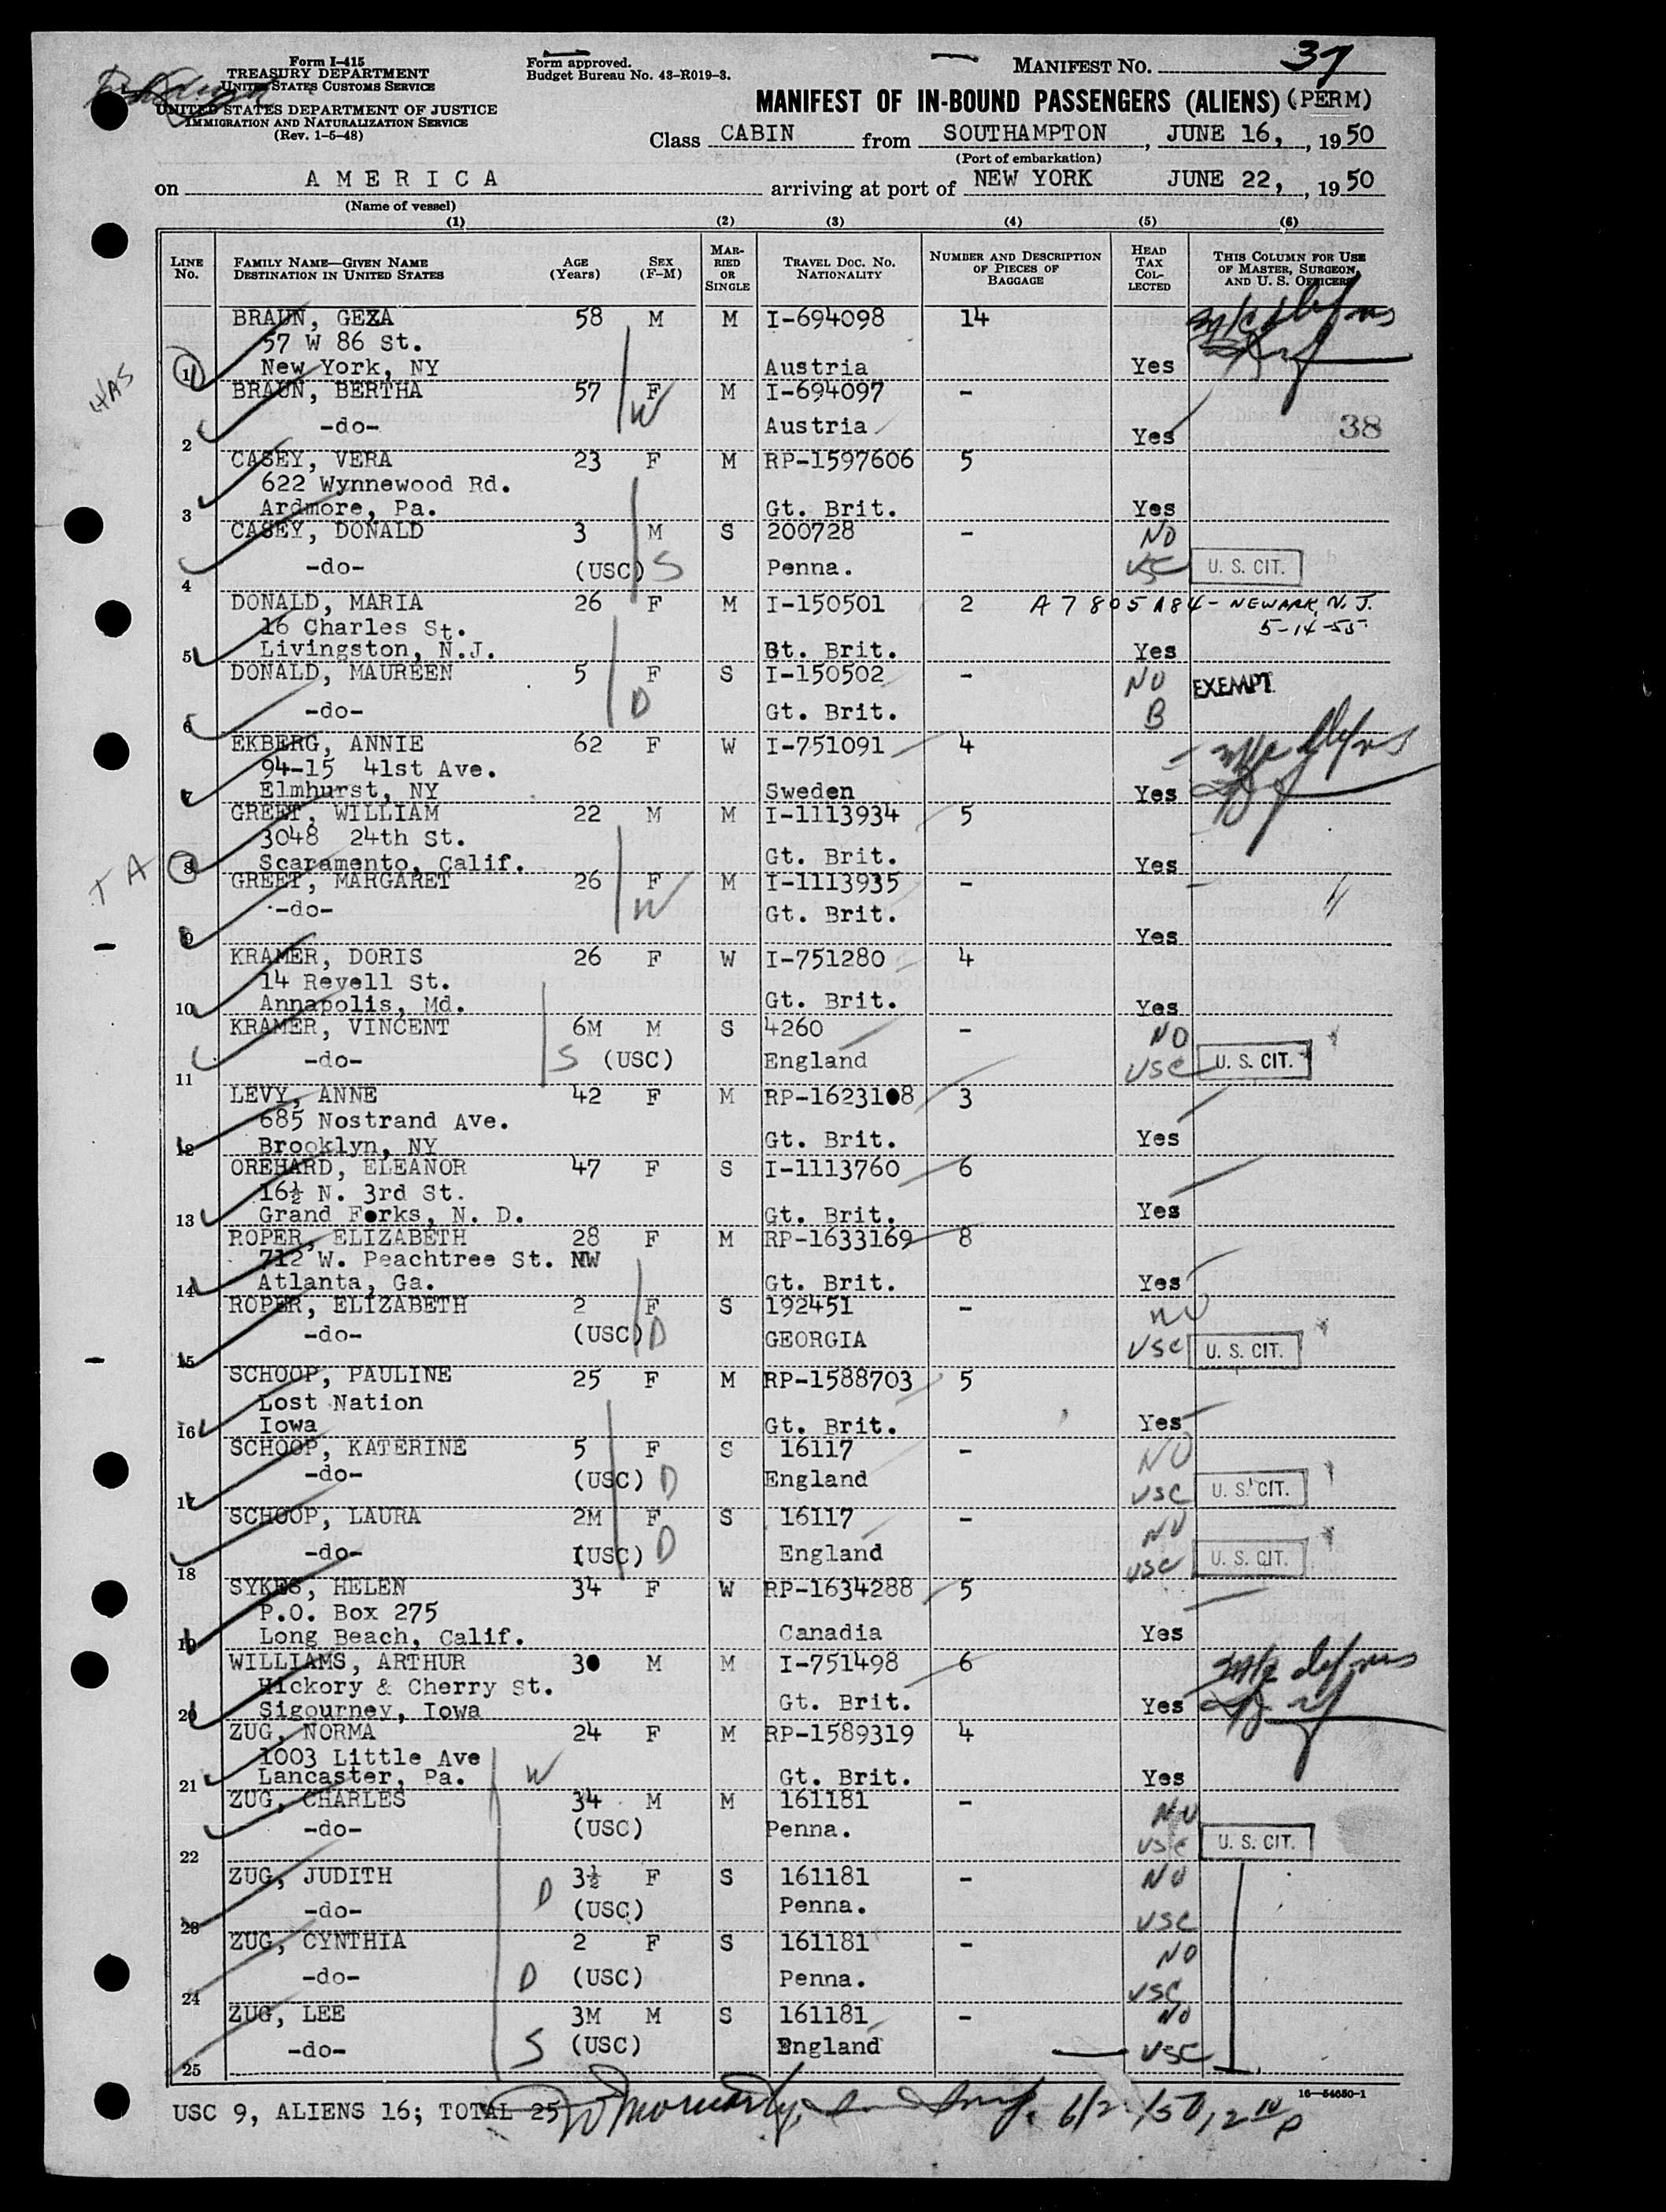 Form I-415
TREASURY DEPARTMENT
UNITED STATES CUSTOMS SERVICE
UNITED STATES DEPARTMENT OF JUSTICE
IMMIGRATION AND NATURALIZATION SERVICE
(Rev. 1-5-48)
Form approved.
Budget Bureau No. 43-R019-3.
MANIFEST NO. 37
MANIFEST OF IN-BOUND PASSENGERS (ALIENS) (PERM)
Class CABIN from SOUTHAMPTON, JUNE 16, 1950
(Port of embarkation)
on AMERICA arriving at port of NEW YORK JUNE 22, 1950
(Name of vessel)
(1) (2) (3) (4) (5) (6)
LINE No. FAMILY NAME—GIVEN NAME DESTINATION IN UNITED STATES AGE (Years) SEX (F-M) MARRIED OR SINGLE TRAVEL DOC. NO. NATIONALITY NUMBER AND DESCRIPTION OF PIECES OF BAGGAGE HEAD TAX COLLECTED THIS COLUMN FOR USE OF MASTER, SURGEON, AND U. S. OFFICERS
BRAUN, GEZA 58 M M I-694098 14
57 W 86 St.
1 New York, NY Austria Yes
BRAUN, BERTHA 57 F M I-694097 -
W
-do- Austria
2 Yes 38
CASEY, VERA 23 F M RP-1597606 5
622 Wynnewood Rd.
3 Ardmore, Pa. Gt. Brit. Yes
CASEY, DONALD 3 M S 200728 - NO
4 -do- (USC) S Penna. USC U. S. CIT.
DONALD, MARIA 26 F M I-150501 2 A7805184- NEWARK, N. J.
16 Charles St. 5-14-55
5 Livingston, N.J. Gt. Brit. Yes
DONALD, MAUREEN 5 F S I-150502 - NO EXEMPT.
6 -do- D Gt. Brit. B
EKBERG, ANNIE 62 F W I-751091 4
94-15 41st Ave.
7 Elmhurst, NY Sweden Yes
GREET, WILLIAM 22 M M I-1113934 5
3048 24th St.
8 Scaramento, Calif. Gt. Brit. Yes
GREET, MARGARET 26 F M I-1113935 -
9 -do- W Gt. Brit. Yes
KRAMER, DORIS 26 F W I-751280 4
14 Revell St.
10 Annapolis, Md. Gt. Brit. Yes
KRAMER, VINCENT 6M M S 4260 - NO
11 -do- S (USC) England USC U. S. CIT.
LEVY, ANNE 42 F M RP-1623108 3
685 Nostrand Ave.
12 Brooklyn, NY Gt. Brit. Yes
OREHARD, ELEANOR 47 F S I-1113760 6
16½ N. 3rd St.
13 Grand Forks, N. D. Gt. Brit. Yes
ROPER, ELIZABETH 28 F M RP-1633169 8
712 W. Peachtree St. NW
14 Atlanta, Ga. Gt. Brit. Yes
ROPER, ELIZABETH 2 F S 192451 - NO
15 -do- (USC) D GEORGIA USC U. S. CIT.
SCHOOP, PAULINE 25 F M RP-1588703 5
Lost Nation
16 Iowa Gt. Brit. Yes
SCHOOP, KATERINE 5 F S 16117 - NO
17 -do- (USC) D England USC U. S. CIT.
SCHOOP, LAURA 2M F S 16117 - NO
18 -do- (USC) D England USC U. S. CIT.
SYKES, HELEN 34 F W RP-1634288 5
P.O. Box 275
19 Long Beach, Calif. Canadia Yes
WILLIAMS, ARTHUR 30 M M I-751498 6
Hickory & Cherry St.
20 Sigourney, Iowa Gt. Brit. Yes
ZUG, NORMA 24 F M RP-1589319 4
1003 Little Ave
21 Lancaster, Pa. W Gt. Brit. Yes
ZUG, CHARLES 34 M M 161181 - NO
22 -do- (USC) Penna. USC U. S. CIT.
ZUG, JUDITH 3½ F S 161181 - NO
23 -do- D (USC) Penna. USC
ZUG, CYNTHIA 2 F S 161181 - NO
24 -do- D (USC) Penna. USC
ZUG, LEE 3M M S 161181 - NO
25 -do- S (USC) England USC
16—54650-1
USC 9, ALIENS 16; TOTAL 25